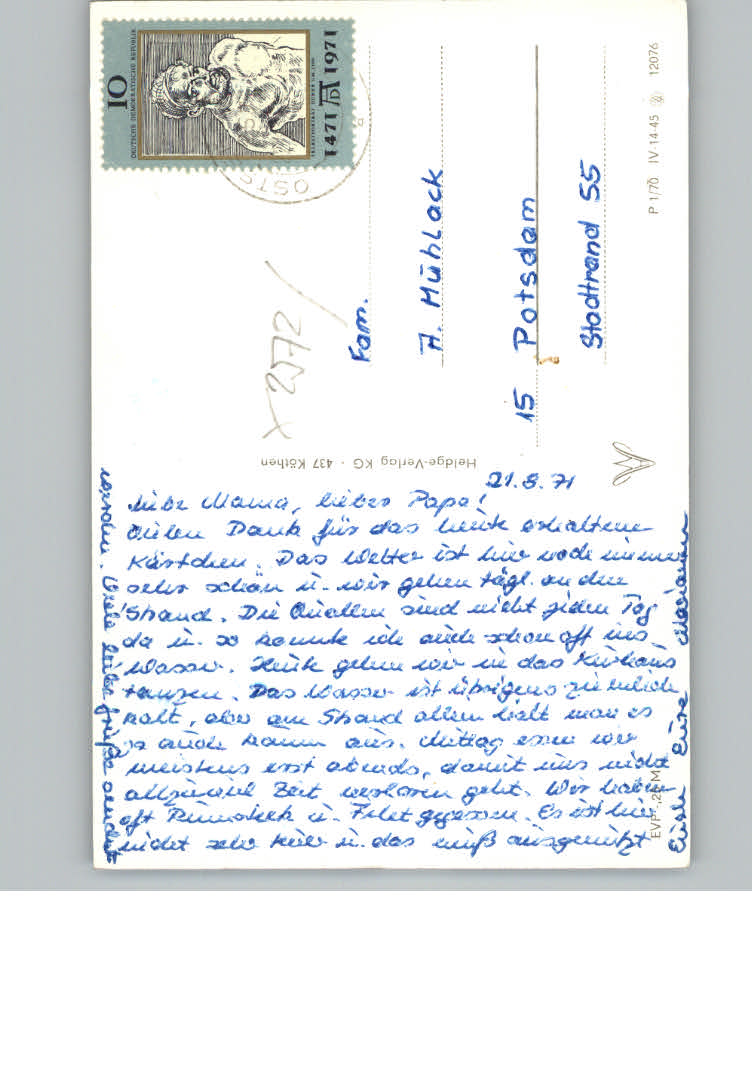 21.8.71
Liebe Mama, lieber Papa!
Vielen Dank für das heute erhaltene
Kärtchen. Das Wetter ist hier noch immer
sehr schön u. wir gehen tägl. an den
Strand. Die Quallen sind nicht jeden Tag
da u. so konnte ich auch schon oft ins
Wasser. Heute gehen wir in das Kurhaus
tanzen. Das Wasser ist übrigens ziemlich
kalt, aber am Strand allein hält man es
ja auch kaum aus. Mittag essen wir
meistens erst abends, damit uns nicht
allzuviel Zeit verloren geht. Wir haben
oft Rumsteck u. Filet gegessen. Es ist hier
nicht sehr teuer u. das muß ausgenützt
werden. Viele liebe Grüße sendet
Euch Eure Marianne
Fam.
A. Mühlack
15 Potsdam
Stadtrand 55
X 2572
Heldge-Verlag KG · 437 Köthen
P 1/70 IV-14-45 12076
EVP -,20 M
10
DEUTSCHE DEMOKRATISCHE REPUBLIK
1471 AD 1971
OSTS